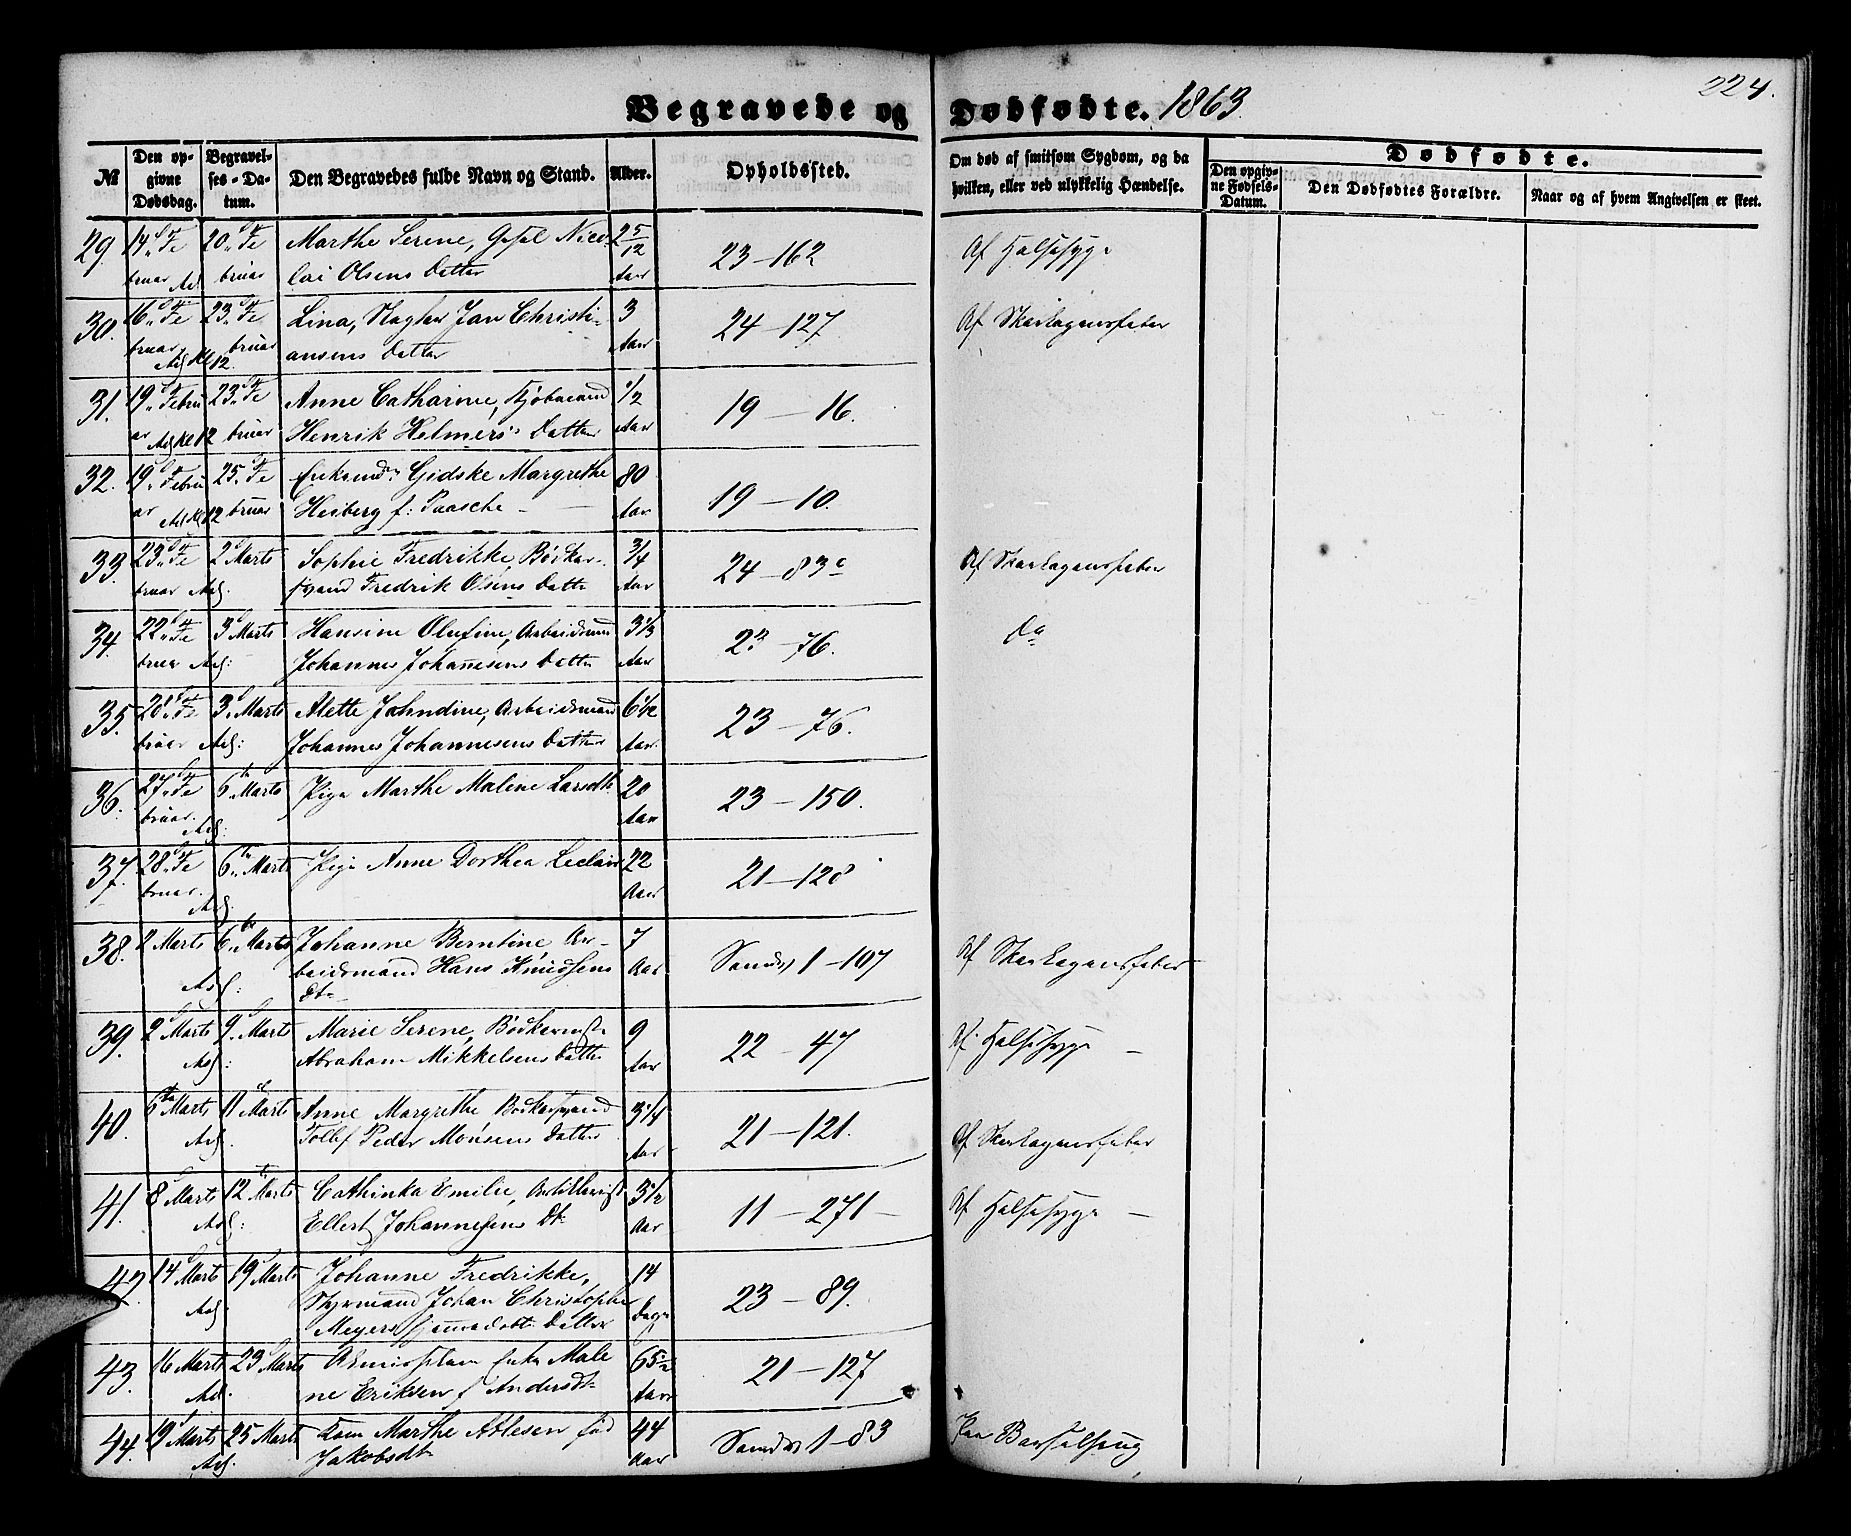 224.
Begravede og Dødfødte. 1863.
№
Den opgivne Dødsdag.
Begravelses-Datum.
Den Begravedes fulde Navn og Stand.
Alder.
Opholdssted.
Om død af smitsom Sygdom, og da hvilken, eller ved ulykkelig Hændelse.
Dødfødte.
Den opgivne Fødsels-Datum.
Den Dødfødtes Forældre.
Naar og af hvem Angivelsen er skeet.
29. 14 Fe 20 Fe Marthe Serene, Nico- 2 5/12 23-162 Af Halssyge
bruar bruar lai Olsens Datter Aar
30. 16 Fe 23 Fe Lina, Jan Christi- 3 24-127 Af Skarlagensfeber
bruar Kl 12 bruar ansens Datter Aar
31. 19 Febru 23 Fe Anne Catharine, Kjøbmand 1/2 19-16.
ar Kl 12 bruar Henrik Helmers Datter Aar
32. 19 Febru 25 Fe Gidske Margrethe 80 19-10.
ar Kl 12 bruar Heiberg f: Paasche Aar
33. 23 Fe 2 Marts Sophie Fredrikke, Bødker- 3/4 24-83c Af Skarlagensfeber
bruar svend Fredrik Olsens Datter Aar
34. 22 Fe 3 Marts Hansine Olufine, Arbeidsmd 3 1/3 23-76. do
bruar Johannes Johannesens Datter Aar
35. 28 Fe 3 Marts Alette Johndine, Arbeidsmand 6 1/2 23-76.
bruar Johannes Johannesens Datter Aar
36. 27 Fe 6 Marts Pige Marthe Malene Larsdtr 20 23-150.
bruar. Aar
37. 28 Fe 6 Marts Pige Anne Dorthea Leclair 22 21-128
bruar. Aar
38. 2 Marts 6 Marts Johanne Berntine Ar- 7 Sandv 1-107 Af Skarlagensfeber
beidsmand Hans Knudsens Aar
Dtr
39. 2 Marts 9 Marts Marie Serene, Bødkersvend 9 22-47 Af Halssyge
Abraham Mikkelsens Datter Aar
40. 6 Marts 11 Marts Anne Margrethe Bødkersvend 3 1/4 21-121. Af Skarlagensfeber
Tollef Peder Monsens Datter Aar
41. 8 Marts 12 Marts Cathinka Emilie, Artillerist 3 1/2 11-271 Af Halssyge
Ellert Johannesens Dtr Aar
42. 14 Marts 19 Marts Johanne Fredrikke, 14 23-89.
Styrmand Johan Christopher Dage
Meyers hjemmedøbt Datter
43. 16 Marts 23 Marts Almislem Enke Male 65 1/2 21-127
ne Eriksen f Andersdtr Aar
44. 19 Marts 25 Marts Kone Marthe Atlesen fød 44 Sandv 1-83 Paa Barselseng
Jakobsdtr Aar